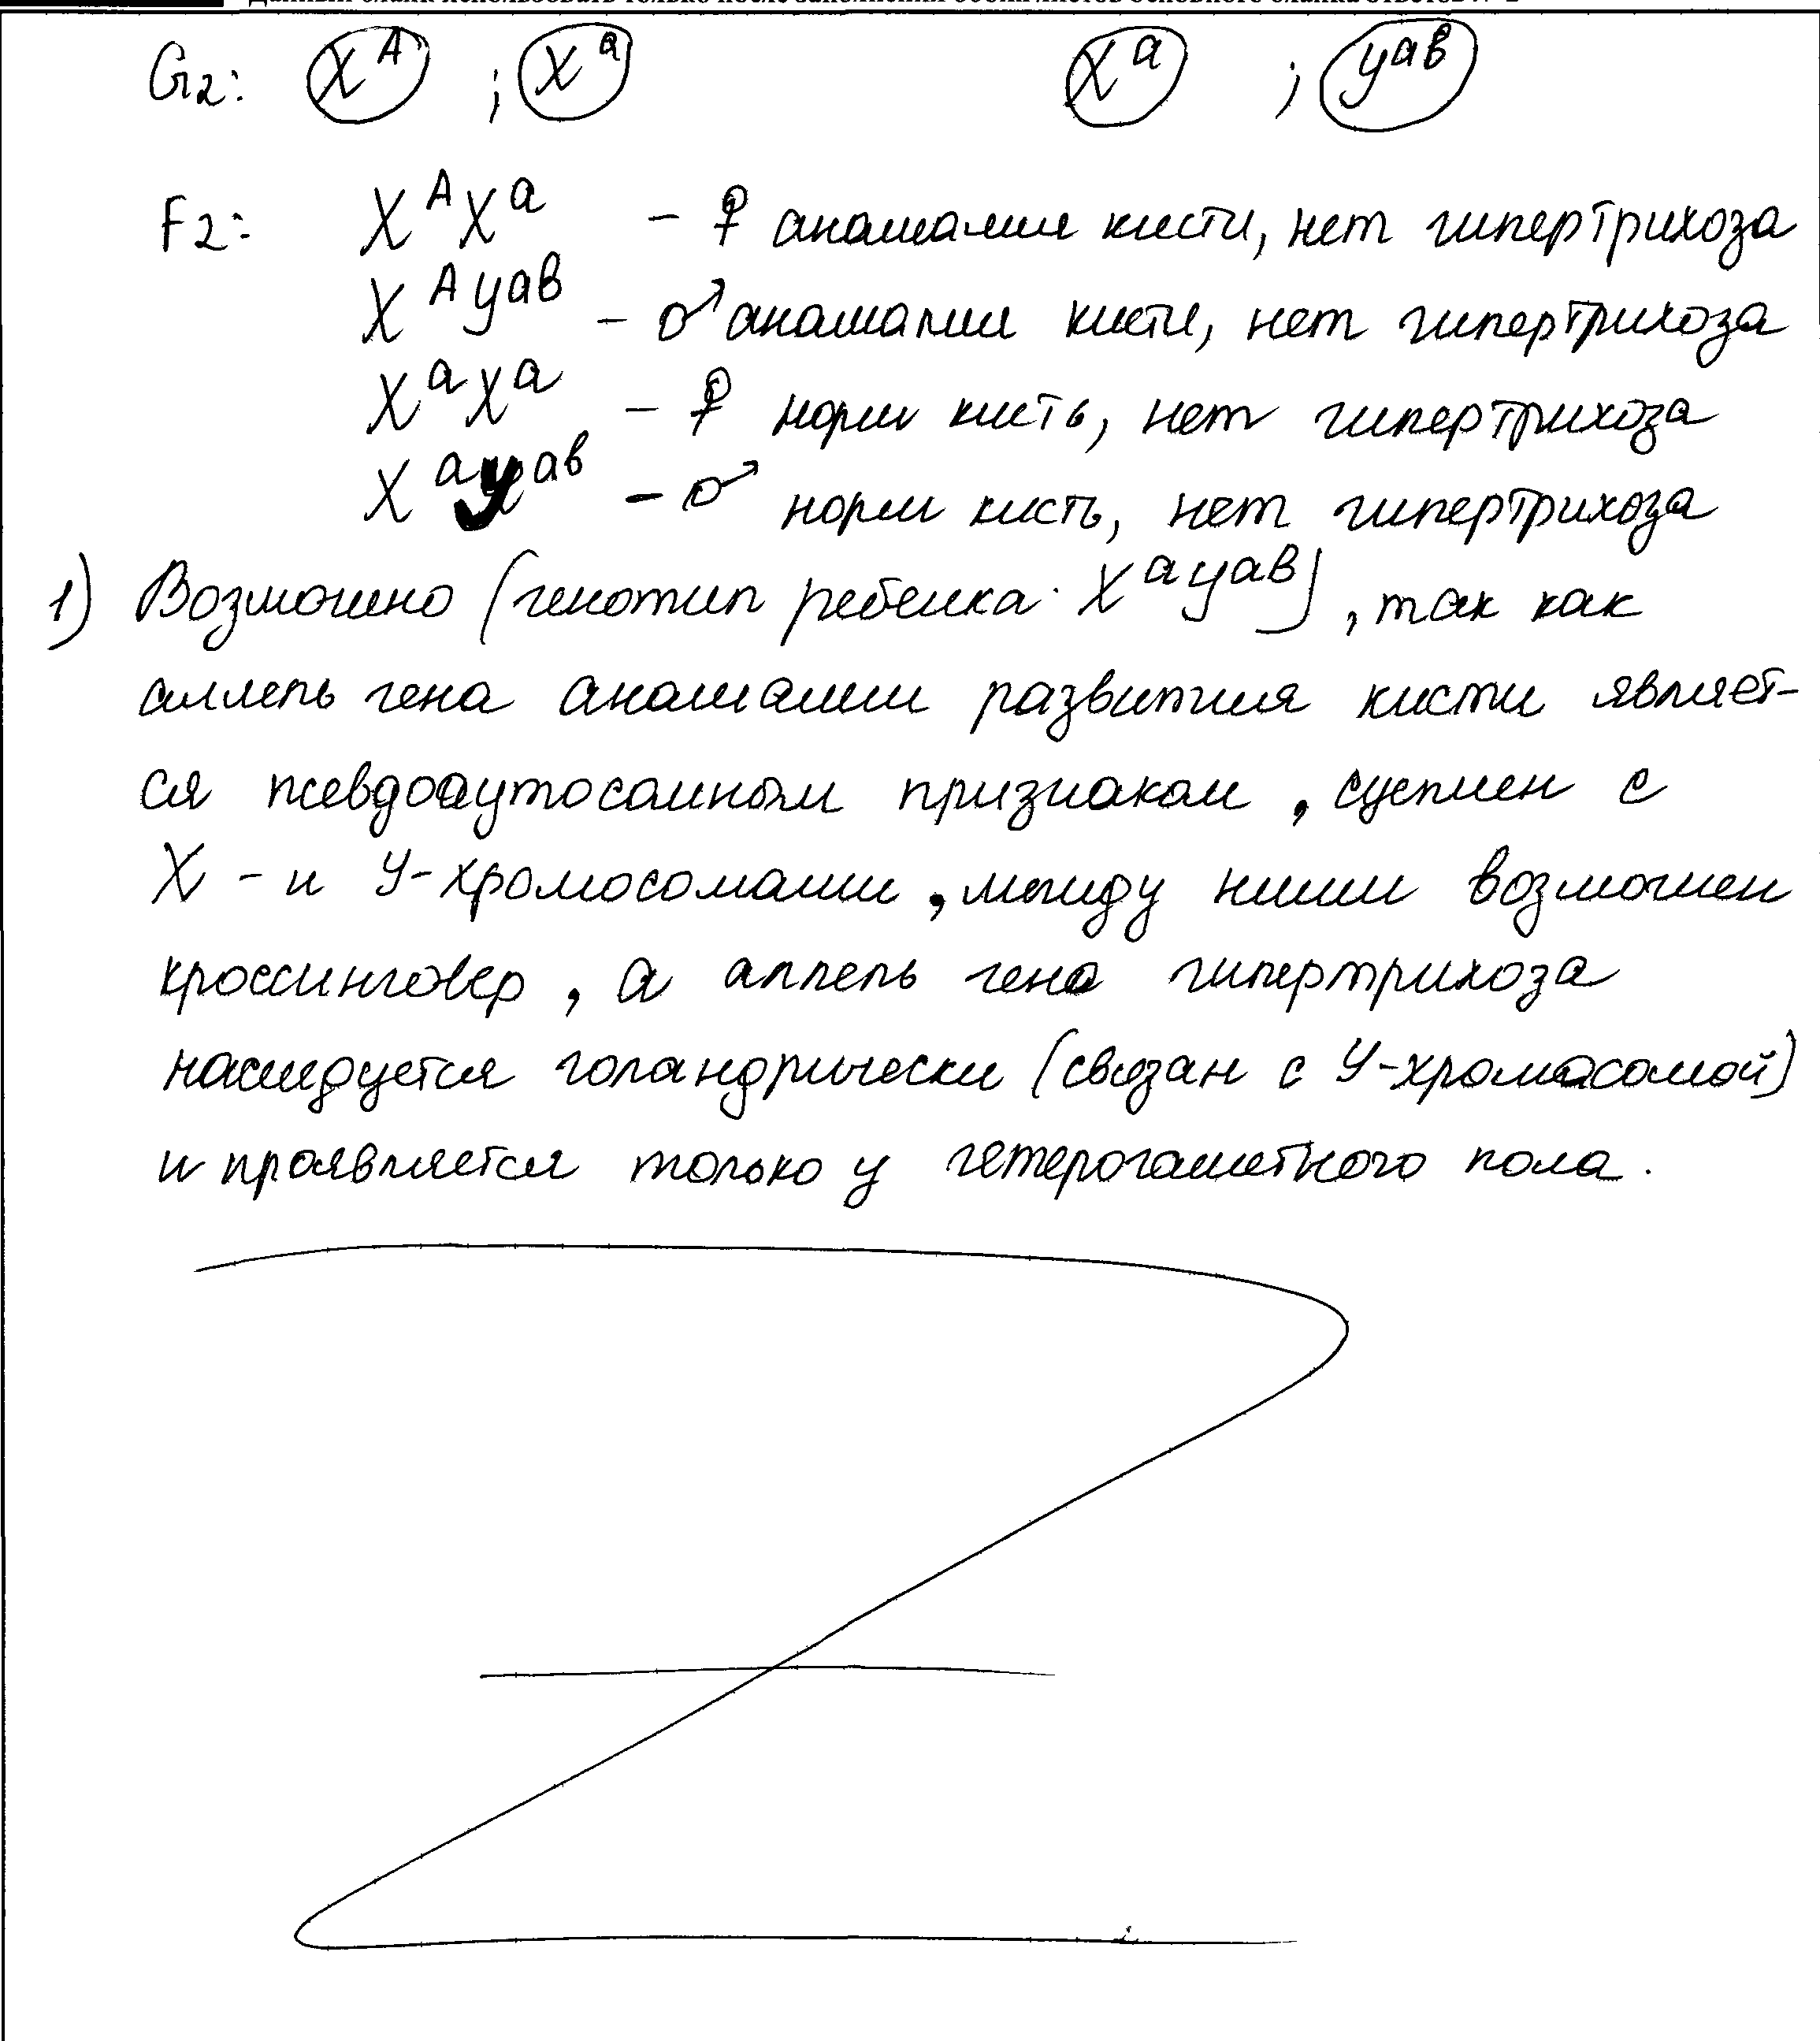 G2: X^A ; X^a X^a ; У^ав
F2: X^A X^a - ♀ аномалия кисти, нет гипертрихоза
X^A У^ав - ♂ аномалии кисти, нет гипертрихоза
X^a X^a - ♀ норм кисть, нет гипертрихоза
X^a У^ав - ♂ норм кисть, нет гипертрихоза
1) Возможно (генотип ребенка: X^a У^ав), так как
аллель гена аномалии развития кисти являет-
ся псевдоаутосомным признаком, сцеплен с
X - и У-хромосомами, между ними возможен
кроссинговер, а аллель гена гипертрихоза
наследуется голандрически (связан с У-хромосомой)
и проявляется только у гетерогаметного пола.